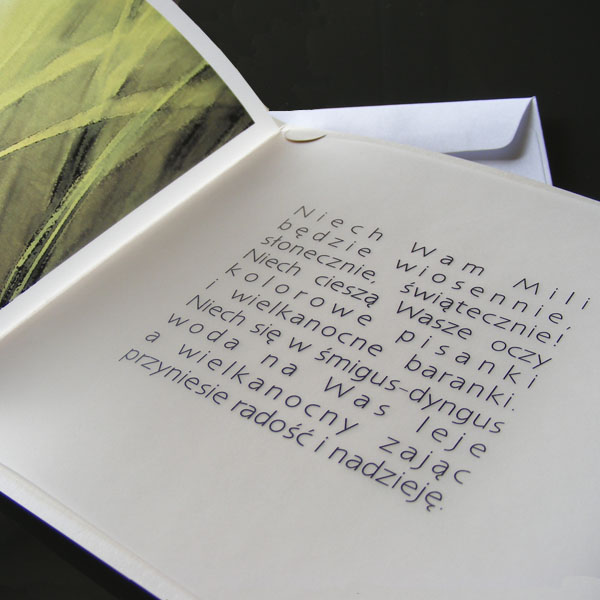 Niech Wam Mili
będzie wiosennie,
słonecznie, świątecznie!
Niech cieszą Wasze oczy
kolorowe pisanki
i wielkanocne baranki.
Niech się w śmigus-dyngus
woda na Was leje
a wielkanocny zając
przyniesie radość i nadzieję.